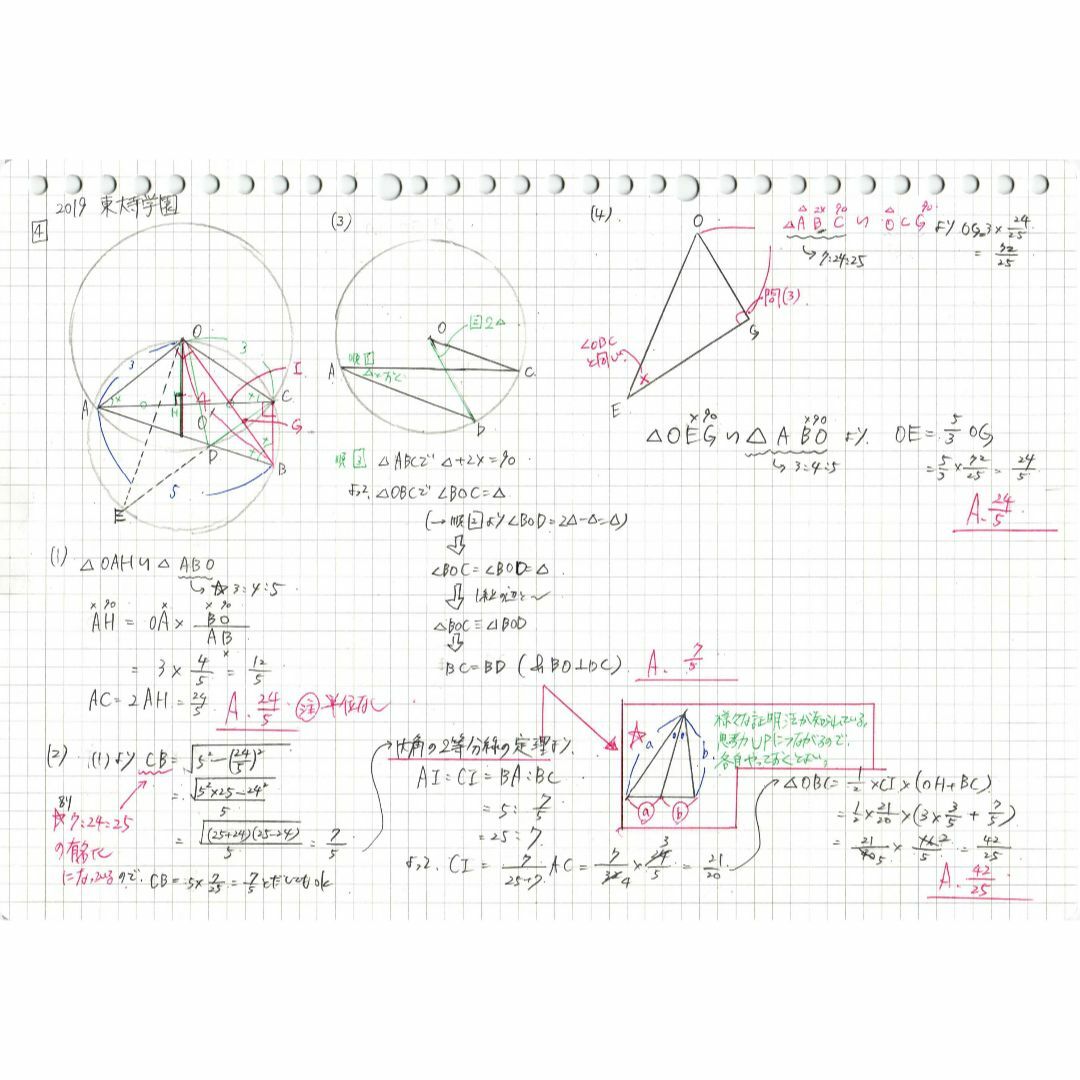 2019 東大寺学園
4
O
3
3
I
A
C
H
G
O'
D
B
5
E
(1) △OAH∽△ABO
↳☆3:4:5
AH = OA × BO/AB
= 3 × 4/5 = 12/5
AC = 2AH = 24/5 A. 24/5 注 単位なし
(2) (1)より CB = √5²-(24/5)²
= √5²×25-24²/5
= √(25+24)(25-24)/5 = 7/5
☆7:24:25
の有名比
になっているので、CB = 5×7/25 = 7/5 としてもok
(3)
O
図2△
順1
△×おく
A
C
D
順3 △ABCで △+2×=90
よって、△OBCで ∠BOC=△
(→順2より∠BOD=2△-△=△)
∠BOC=∠BOD=△
△BOC≡△BOD
BC=BD (&BO⊥DC) A. 7/5
内角の2等分線の定理より、
AI:CI = BA:BC
= 5:7/5
= 25:7
よって、CI = 7/25+7 AC = 7/32 4 × 24 3/5 = 21/20
☆ a b
a b
様々な証明法が知られている。
思考力UPにつながるので、
各自やっておくとよい。
△OBC = 1/2 × CI × (OH+BC)
= 1/2 × 21/20 × (3×3/5 + 7/5)
= 42/25
A. 42/25
(4)
O
問(3)
G
∠OBC
と同じ。
×
E
△ 2× 90 △ 90
△ABC∽OCG より OG=3×24/25
↳7:24:25
= 72/25
× 90 × 90
△OEG∽△ABO より、 OE = 5/3 OG
↳3:4:5
= 5/3 × 72/25 = 24/5
A. 24/5